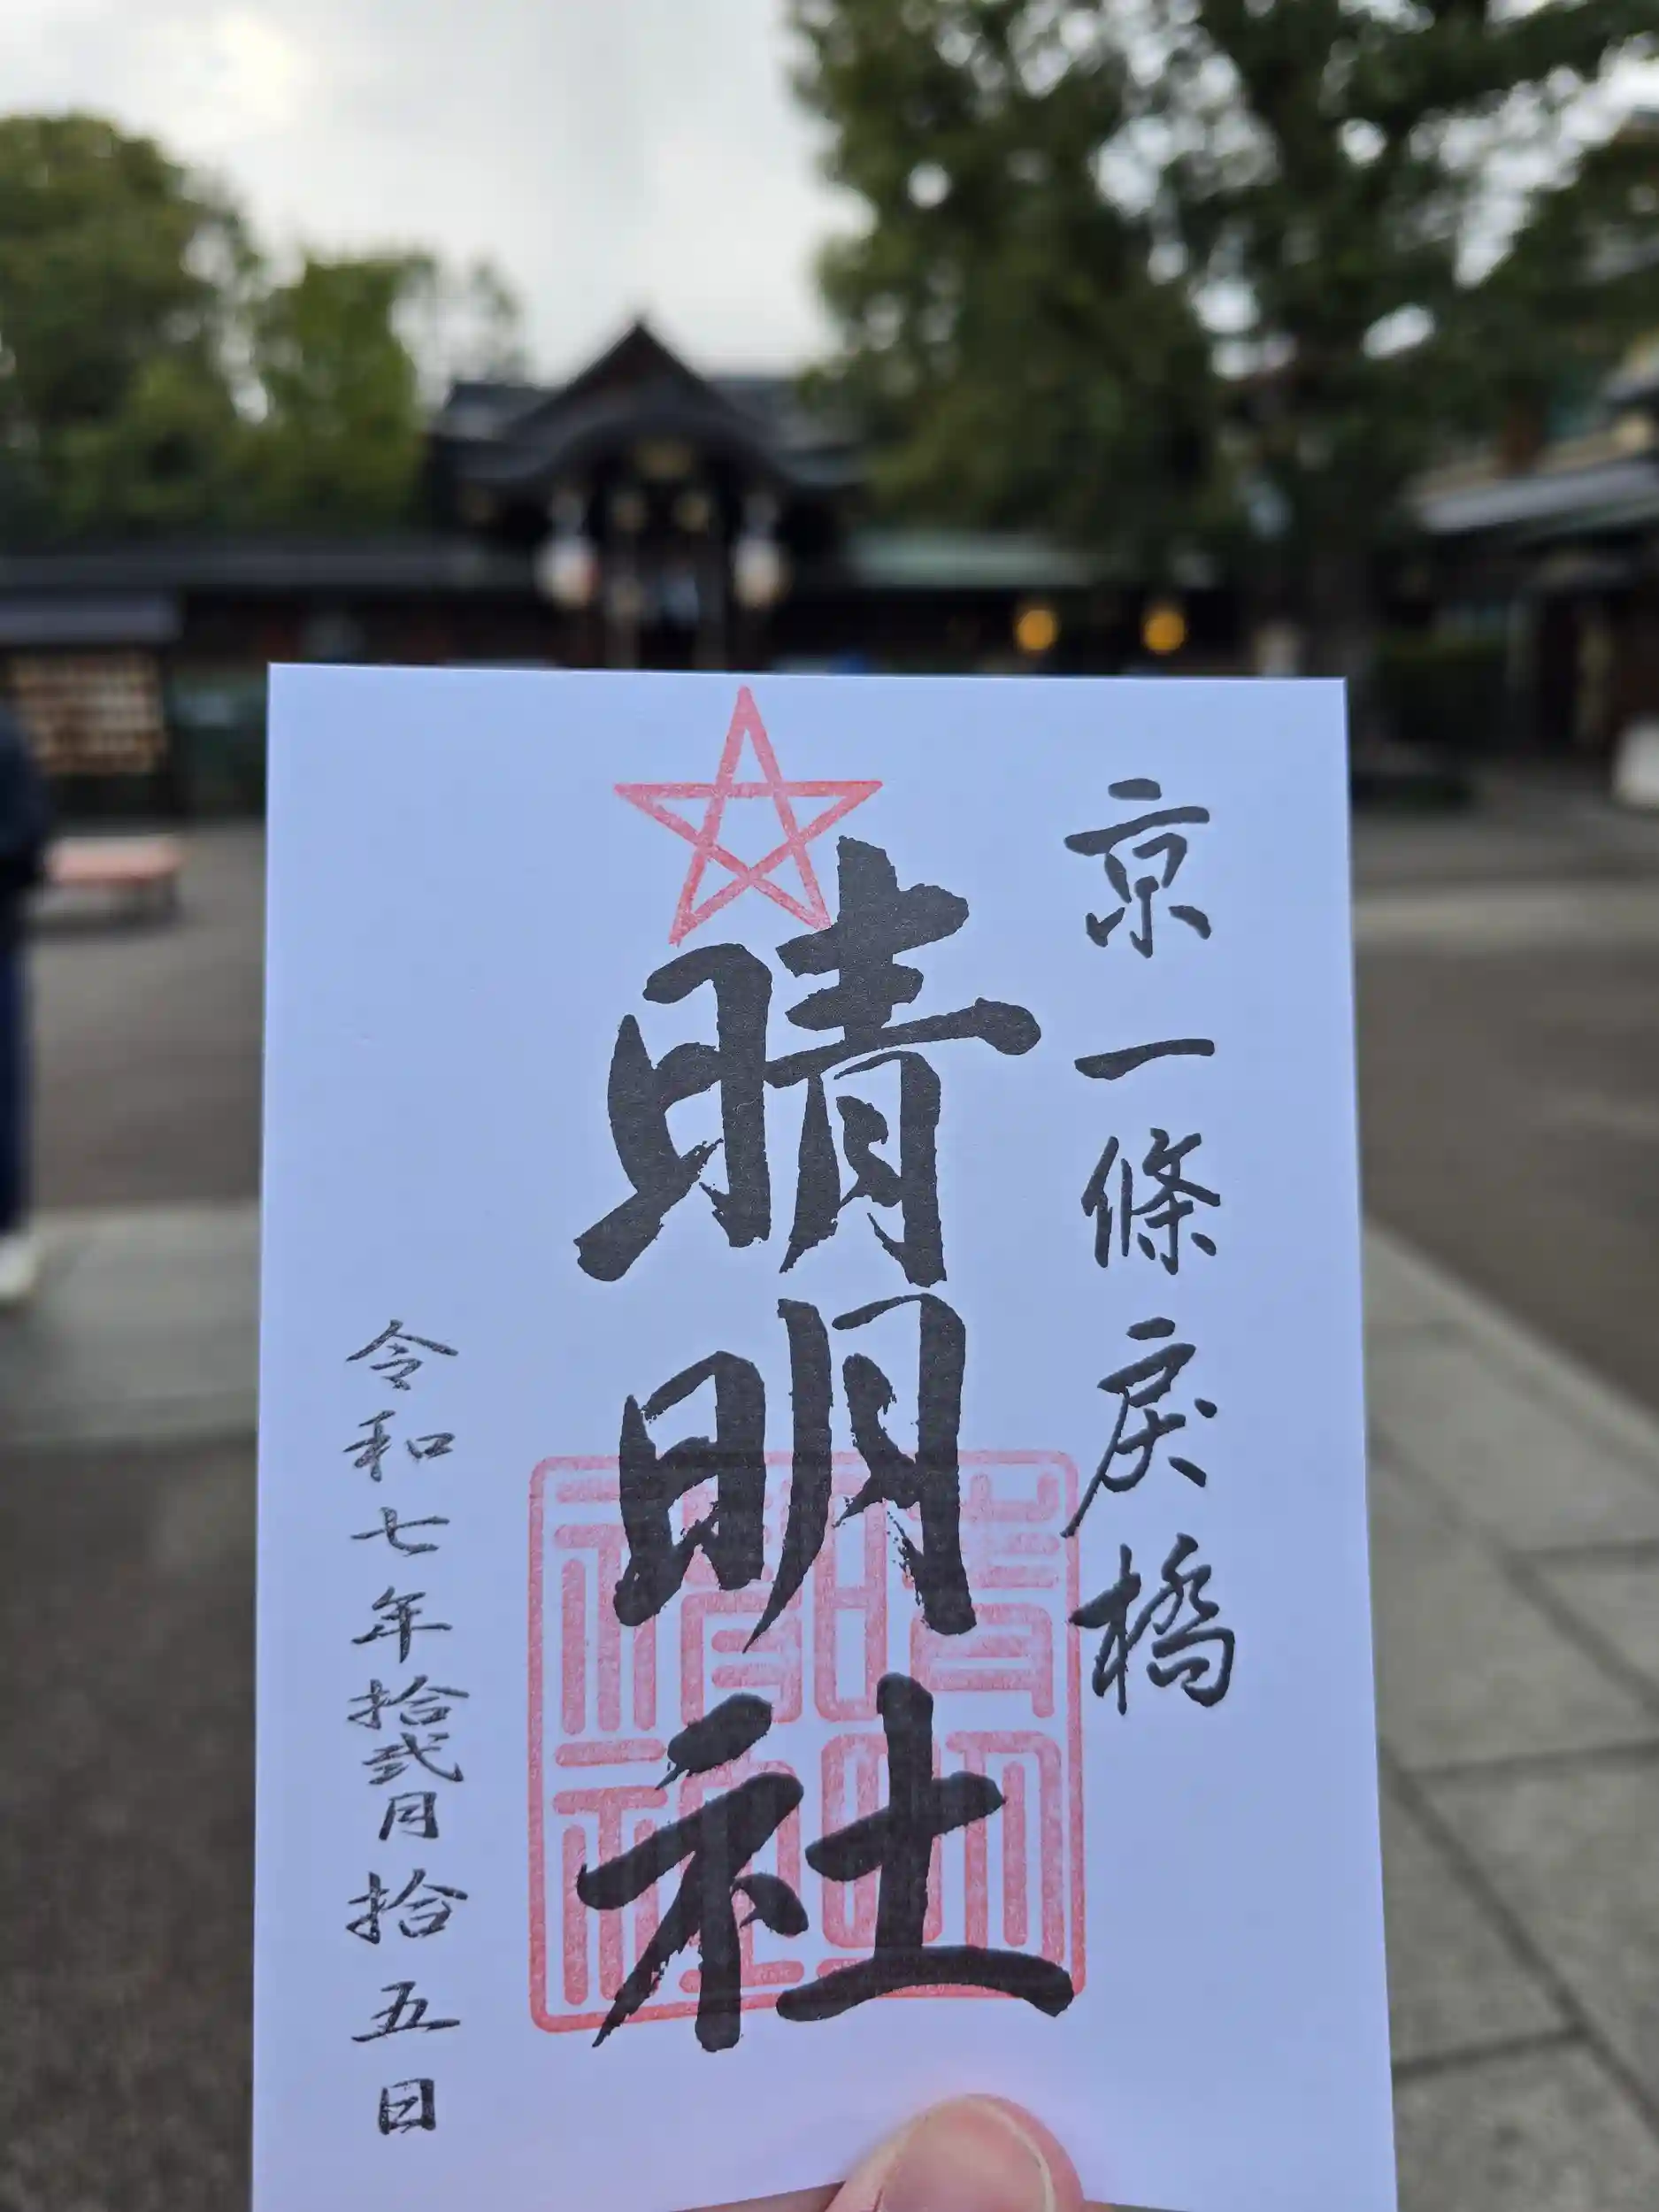 京一條戻橋
晴明社
令和七年拾弐月拾五日